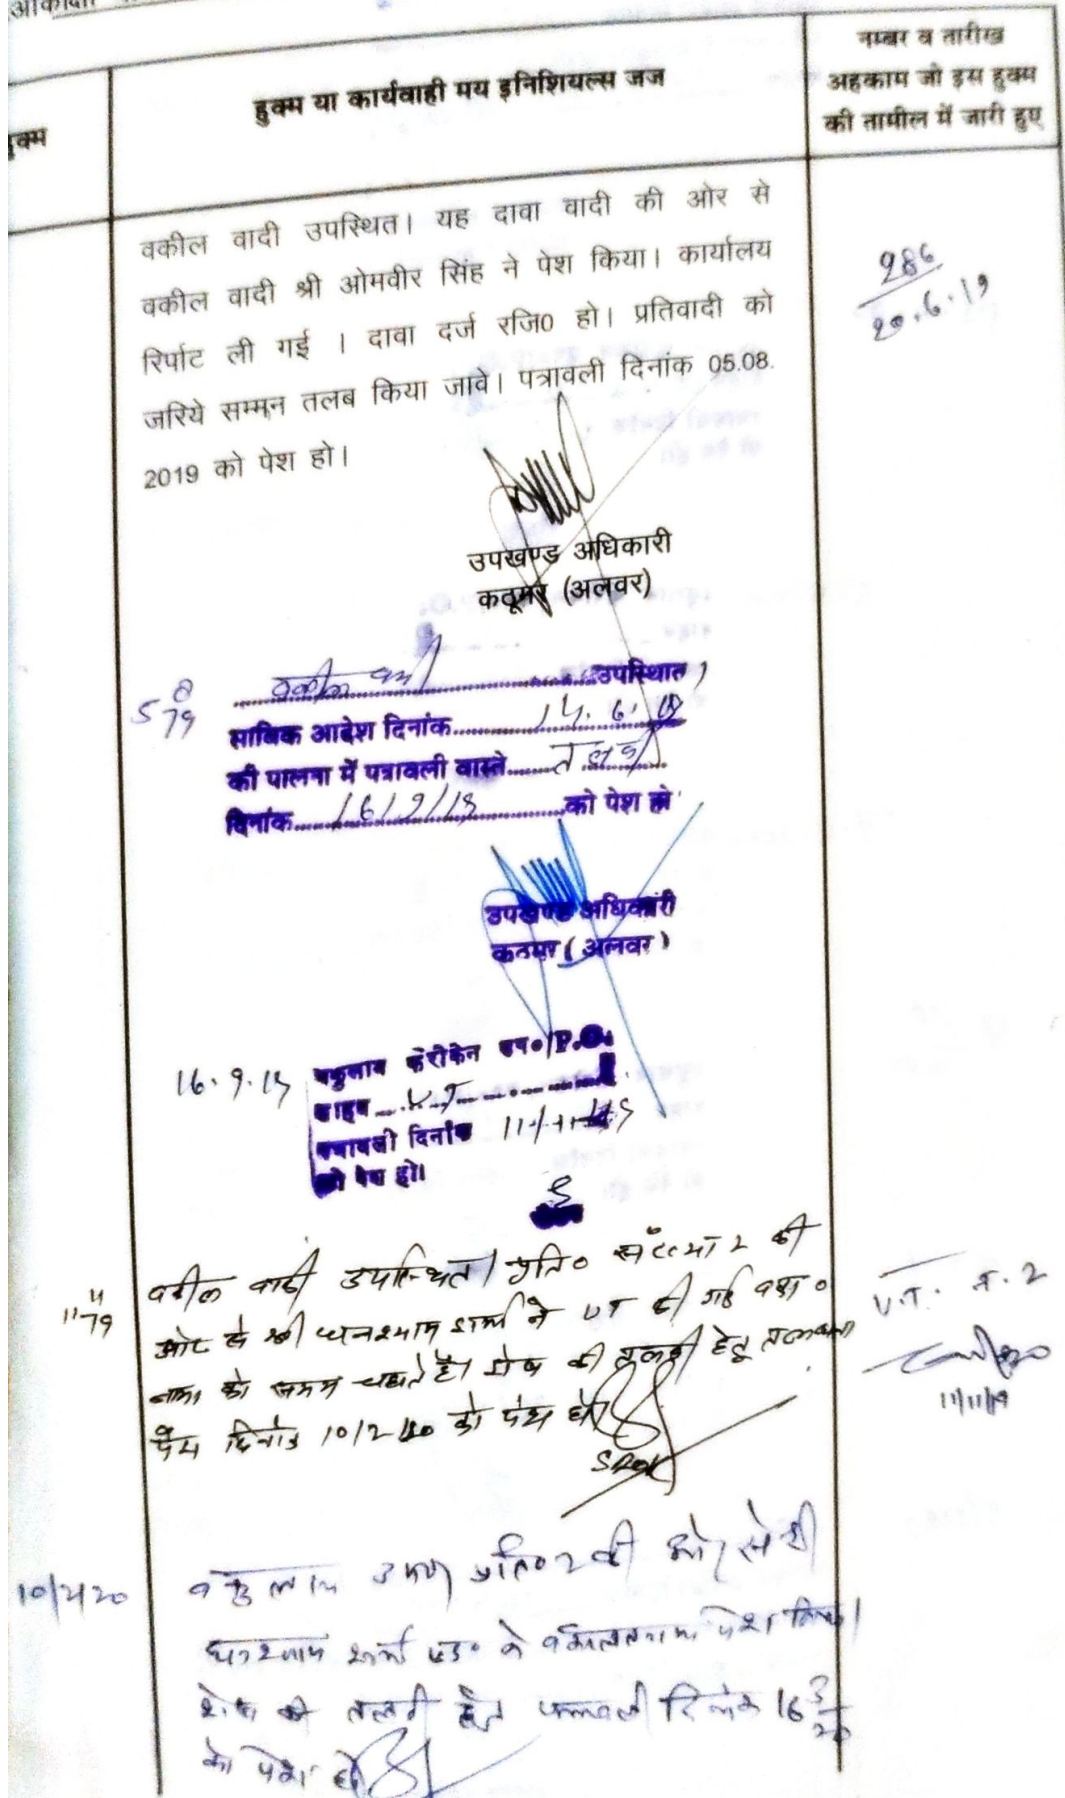 हुक्म या कार्यवाही मय इनिशियल्स जज
नम्बर व तारीख
अहकाम जो इस हुक्म
की तामील में जारी हुए
वकील वादी उपस्थित। यह दावा वादी की ओर से
वकील वादी श्री ओमवीर सिंह ने पेश किया। कार्यालय
रिर्पाट ली गई । दावा दर्ज रजि0 हो। प्रतिवादी को
जरिये सम्मन तलब किया जावे। पत्रावली दिनांक 05.08.
2019 को पेश हो।
286
20.6.19
उपखण्ड अधिकारी
कठूमर (अलवर)
5 8/19
वकील वादी उपस्थित
साबिक आदेश दिनांक
की पालना में पत्रावली वास्ते तलबी
दिनांक 16/9/19 को पेश हो
उपखण्ड अधिकारी
कठूमर (अलवर)
16.9.19
P.O.
पत्रावली दिनांक
को पेश हो।
11 11/19
वकील वादी उपस्थित। प्रति० संख्या 2 की
ओर से श्री घनश्याम शर्मा ने UT दी गई
को समय चाहते है। शेष की तलबी हेतु
पेश दिनांक 10/2/20 को पेश हो
U.T. प्र. 2
11/11/19
10/2/20
वकुलाय उप० प्रति० 2 की ओर से श्री
घनश्याम शर्मा एड० ने वकालतनामा पेश किया।
शेष की तलबी हेतु पत्रावली दिनांक 16 3/20
को पेश हो